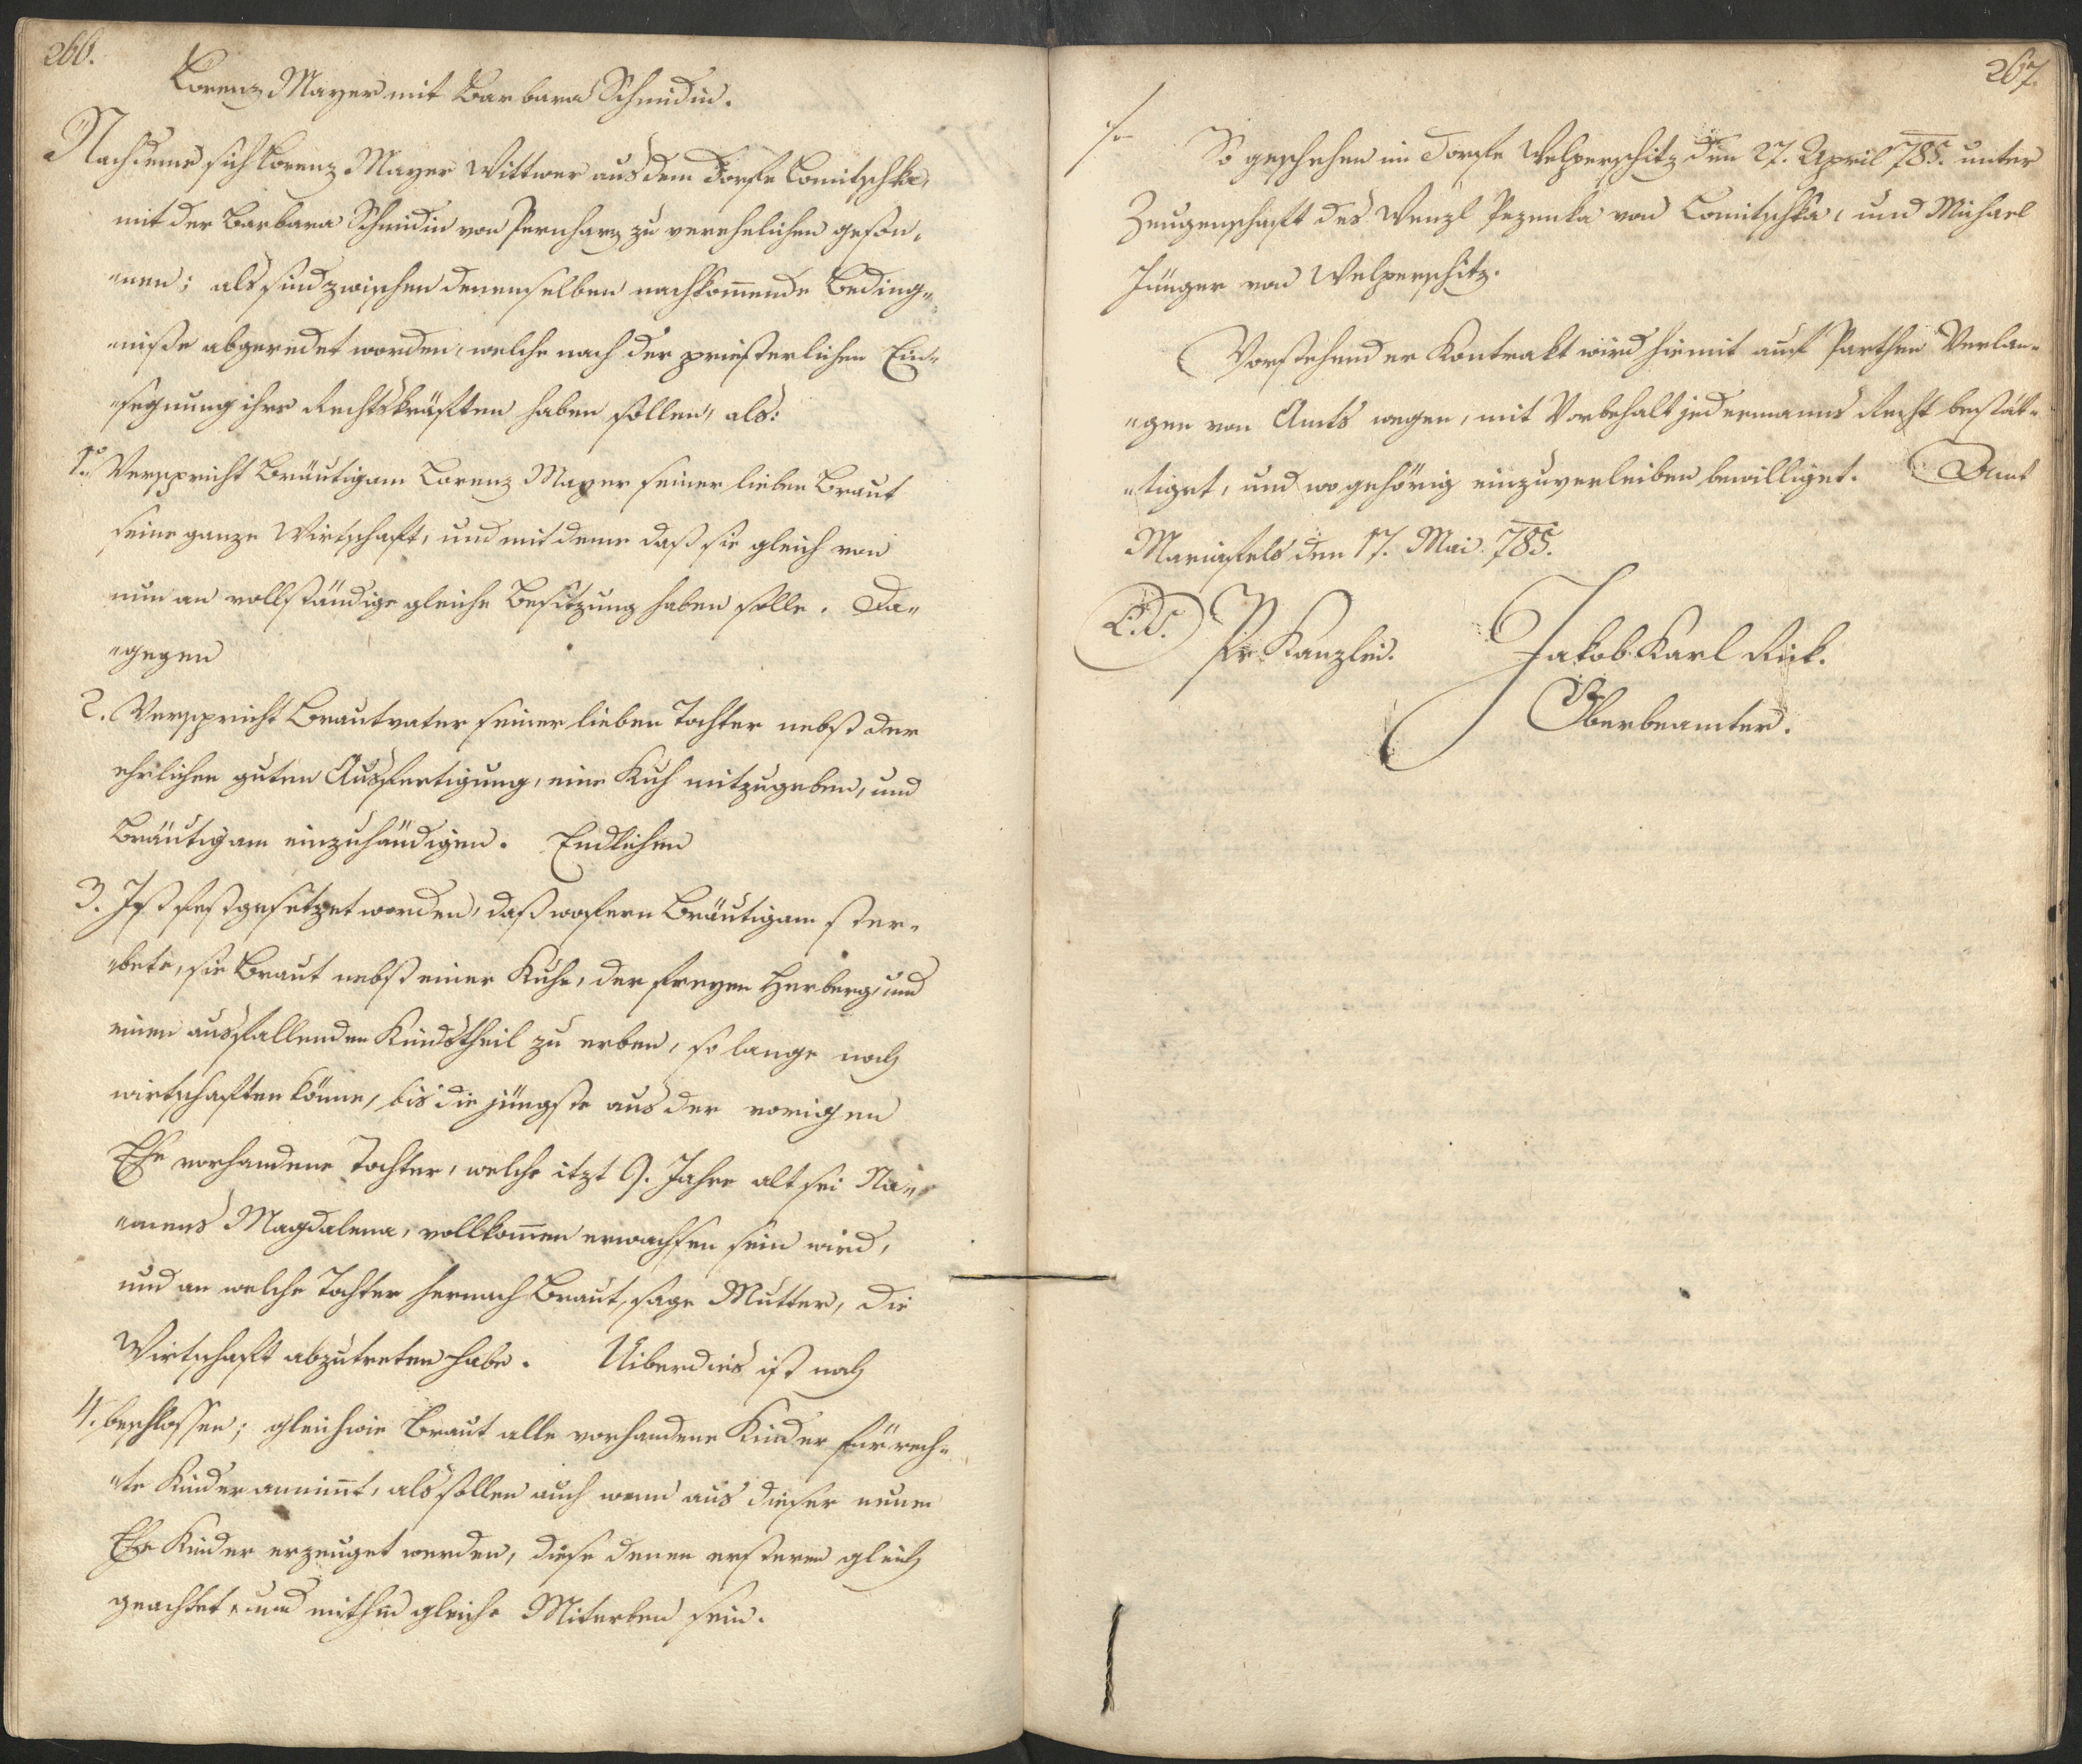 266.
Lorenz Mayer mit Barbara Schmidin.
Nachdeme sich Lorenz Mayer Wittwer aus dem Dorfe Lomitschka,
mit der Barbara Schmidin von Pernharz zu verehelichen geson„
„nen; als sind zwischen denenselben nachkom̄ende Beding„
„niße abgeredet worden, welche nach der priesterlichen Ein„
„segnung ihre Rechtskräften haben sollen, als:
1o Verspricht Bräutigam Lorenz Mayer seiner lieben Braut
seine ganze Wirtschaft, und mit deme daß sie gleich von
nun an vollständige gleiche Besitzung haben solle. Da„
„gegen
2. Verspricht Brautvater seiner lieben Tochter nebst der
ehrlichen guten Ausfertigung, eine Kuh mitzugeben, und
Bräutigam einzuhändigen. Endlichen
3. Ist festgesetzet worden, daß wofern Bräutigam ster„
„bete, sie Braut nebst einer Kuhe, der freyen Herberg, und
einen ausfallenden Kindstheil zu erben, so lange noch
wirtschaften könne, bis die jüngste aus der vorigen
Ehe vorhandene Tochter, welche itzt 9. Jahre alt sei Na„
„mens Magdalena, vollkom̄en erwachsen sein wird,
und an welche Tochter hernach Braut, sage Mutter, die
Wirtschaft abzutreten habe. Uiberdies ist noch
4. beschlossen; gleichwie Braut alle vorhandene Kinder für rech„
„te Kinder annim̄t, als sollen auch wenn aus dieser neuen
Ehe Kinder erzeuget werden, diese denen ersteren gleich
geachtet, und mithin gleiche Miterben sein.
267.
So geschehen im Dorfe Welperschitz den 27. April 785. unter
Zeugenschaft des Wenzl Pezenka von Lomitschka, und Michael
Jünger von Welperschitz.
Vorstehender Kontrakt wird hiemit auf Parthen Verlan„
„gen von Amts wegen, mit Vorbehalt jedermanns Recht bestät„
„tiget, und wo gehörig einzuverleiben bewilliget. Amt
Mariafels den 17. Mai 785.
L.S. Pr. Kanzlei. Jakob Karl Rick.
Oberbeamter.